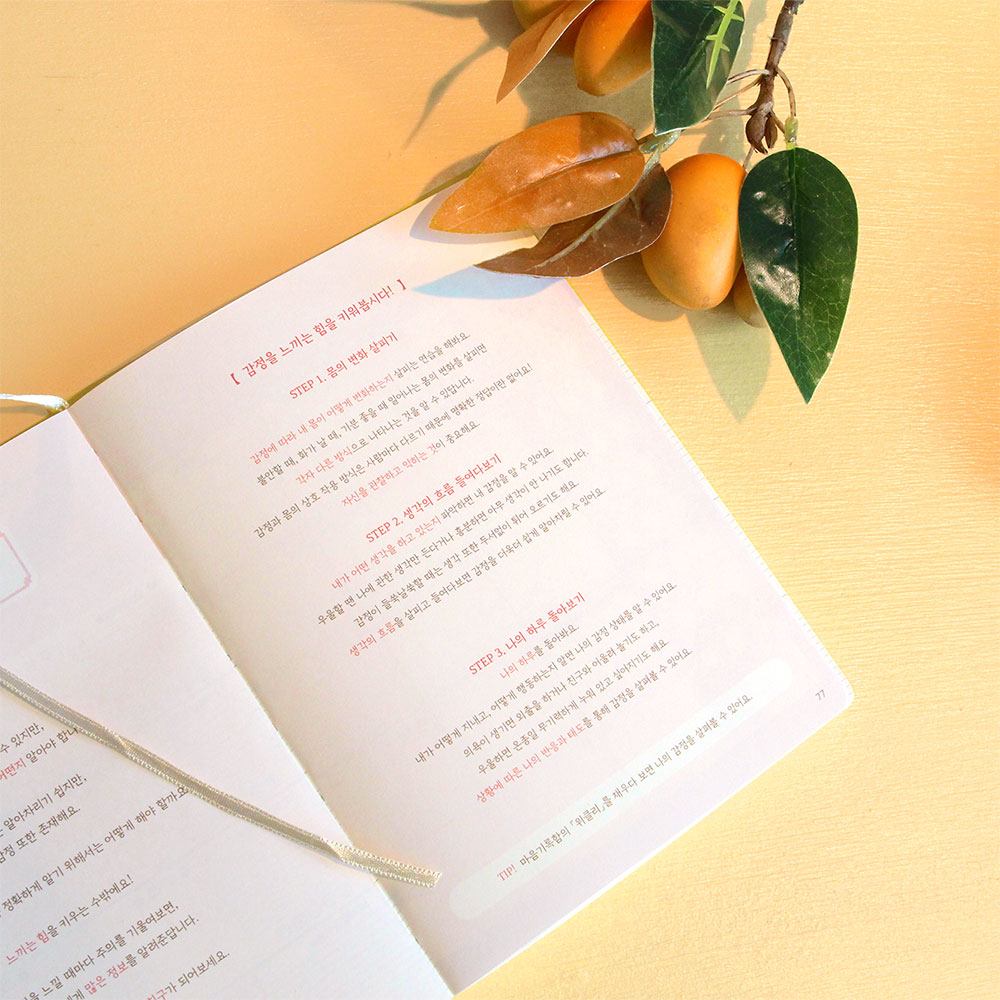 수 있지만,
어떤지 알아야 합니
알아차리기 쉽지만,
감정 또한 존재해요.
정확하게 알기 위해서는 어떻게 해야 할까요
느끼는 힘을 키우는 수밖에요!
을 느낄 때마다 주의를 기울여보면,
에게 많은 정보를 알려준답니다.
친구가 되어보세요.
【 감정을 느끼는 힘을 키워봅시다! 】
STEP 1. 몸의 변화 살피기
감정에 따라 내 몸이 어떻게 변화하는지 살피는 연습을 해봐요.
불안할 때, 화가 날 때, 기분 좋을 때 일어나는 몸의 변화를 살피면
각자 다른 방식으로 나타나는 것을 알 수 있답니다.
감정과 몸의 상호 작용 방식은 사람마다 다르기 때문에 명확한 정답이란 없어요!
자신을 관찰하고 악하는 것이 중요해요.
STEP 2. 생각의 흐름 들여다보기
내가 어떤 생각을 하고 있는지 파악하면 내 감정을 알 수 있어요.
우울할 땐 나에 관한 생각만 든다거나 흥분하면 아무 생각이 안 나기도 합니다.
감정이 들쑥날쑥할 때는 생각 또한 두서없이 튀어 오르기도 해요.
생각의 흐름을 살피고 들여다보면 감정을 더욱더 쉽게 알아차릴 수 있어요.
STEP 3. 나의 하루 돌아보기
나의 하루를 돌아봐요.
내가 어떻게 지내고, 어떻게 행동하는지 알면 나의 감정 상태를 알 수 있어요.
의욕이 생기면 외출을 하거나 친구와 어울려 놀기도 하고,
우울하면 온종일 무기력하게 누워 있고 싶어지기도 해요
상황에 따른 나의 반응과 태도를 통해 감정을 살펴볼 수 있어요.
TIP! 마음기록함의 「위클리」를 채우다 보면 나의 감정을 살펴볼 수 있어요.
77